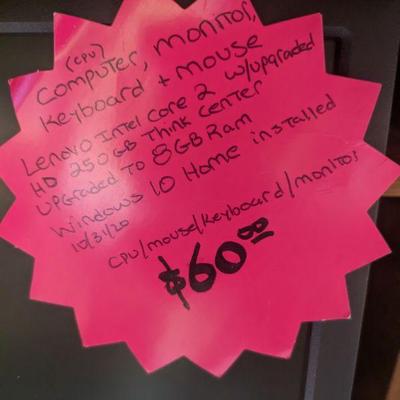 (CPU)
Computer, monitor,
Keyboard + mouse
Lenovo Intel Core 2 w/upgraded
HD 250GB Think Center
Upgraded to 8GB Ram
Windows 10 Home installed
10/31/20
CPU/mouse/keyboard/monitor
$60.00